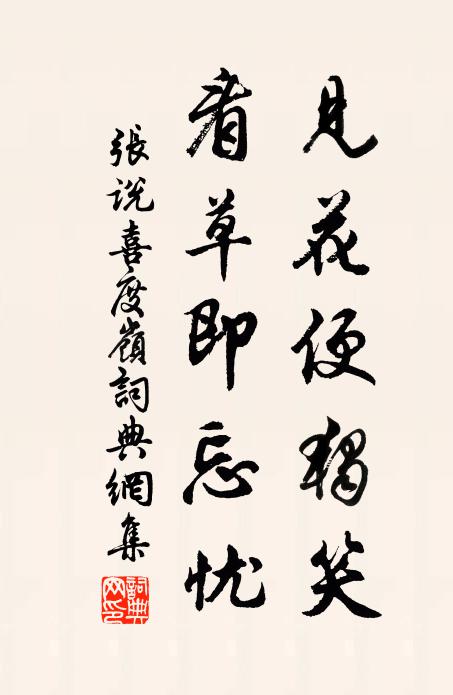 見花便獨笑
看草即忘忧
張说喜度嶺詞典網集
詞典网印